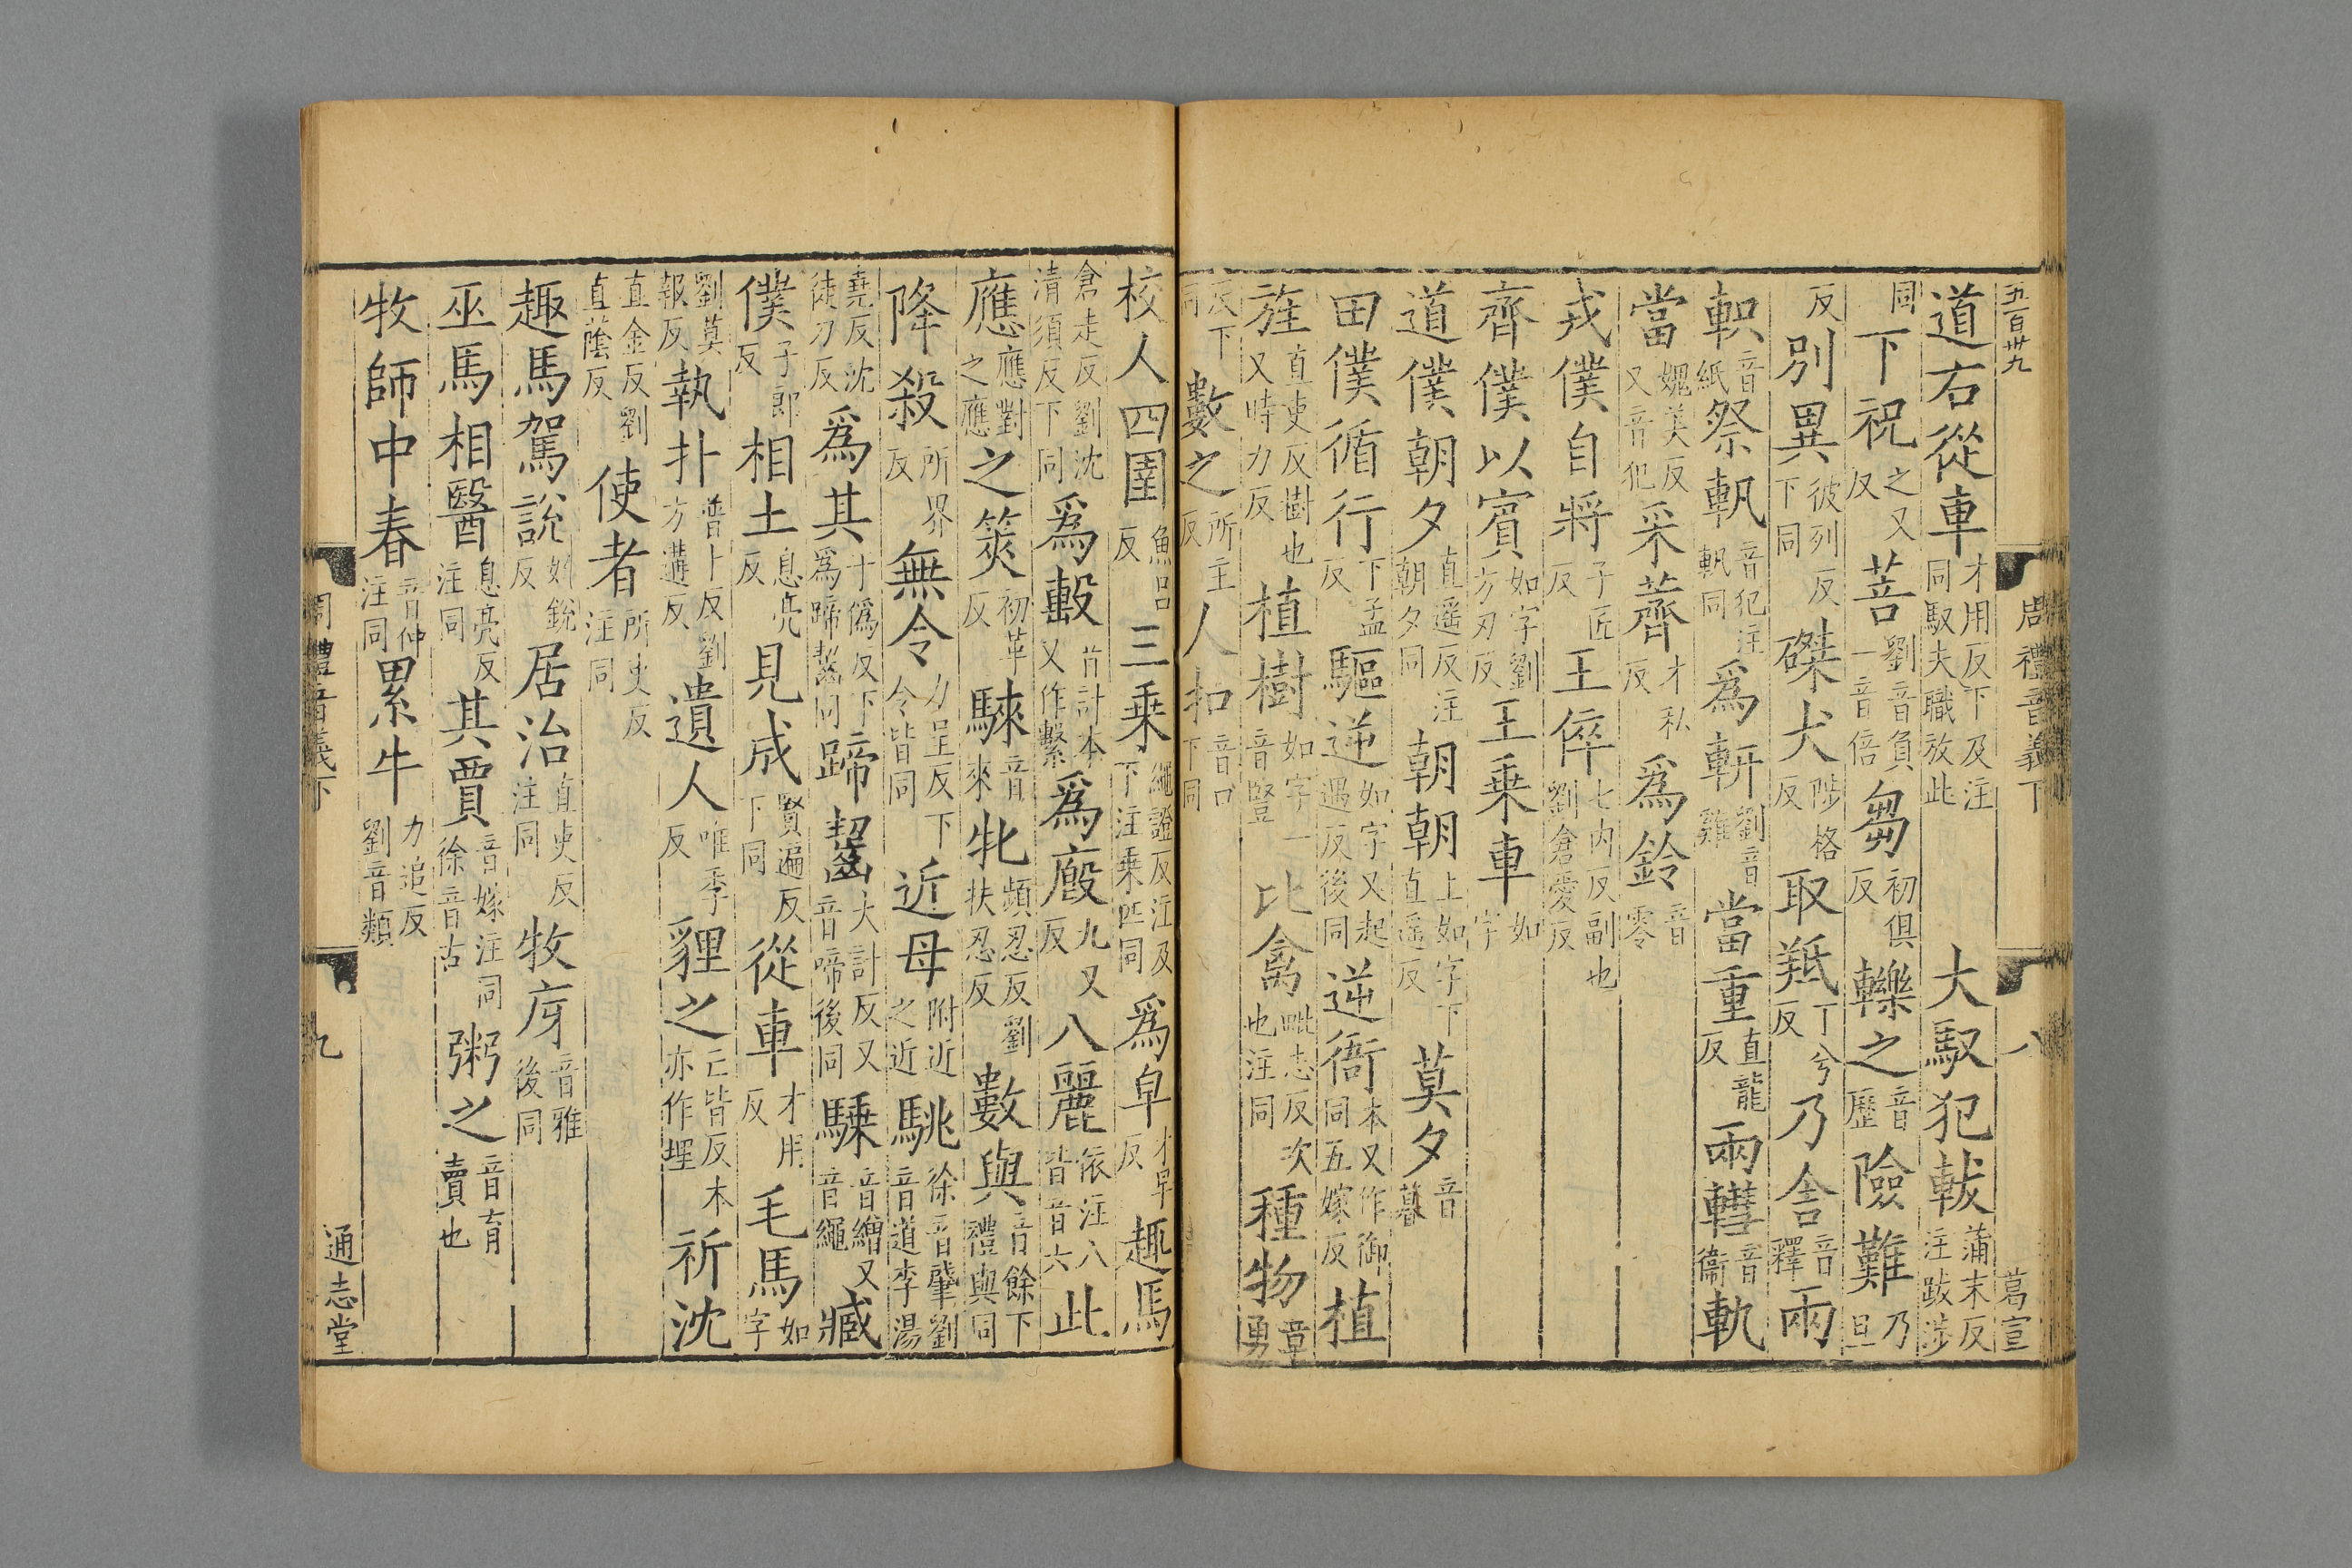 五百卅九 周禮音義下 八 葛宣
道右從車才用反下及注同馭夫職放此 大馭犯軷蒲末反注跋涉
同下祝之又反菩劉音負一音倍芻初俱反轢之音歷險難乃旦
反別異彼列反下同磔犬陟格反取羝丁兮反乃舍音釋兩
軹音紙祭軓音犯注軓同為䡇劉音雞當重直龍反兩轊音衞軌
當媿美反又音犯采薺才私反為鈴音零
戎僕自將子匠反王倅七內反副也劉倉愛反
齊僕以賓如字劉方刃反王乗車如字
道僕朝夕直遥反注朝夕同朝朝上如字下直遥反莫夕音暮
田僕循行下孟反驅逆如字又起遇反後同逆衙本又作御同五嫁反植
旌直吏反樹也又時力反植樹如字一音豎比禽毗志反次也注同種物章勇
反下同數之所主反人扣音口下同
校人四圉魚呂反三乗繩證反注及下注乗匹同為皁才早反趣馬
倉走反劉沈清須反下同為毄音計本又作繫為廏九又反八麗依注八皆音六此
應應對之應之筴初革反騋音來牝頻忍反劉扶忍反數與音餘下禮與同
降殺所界反無令力呈反下令皆同近母附近之近駣徐音肇劉音道李湯
堯反沈徒刀反為其于偽反下為蹄齧同蹄齧大計反又音啼後同騬音繒又音繩臧
僕子郎反相土息亮反見成賢遍反下同從車才用反毛馬如字
劉莫報反執扑普卜反劉方遘反遺人唯季反貍之亡皆反本亦作埋祈沈
直金反劉直蔭反使者所吏反注同
趣馬駕說始銳反居治直吏反注同牧庌音雅後同
巫馬相醫息亮反注同其賈音嫁注同徐音古粥之音育賣也
牧師中春音仲注同累牛力追反劉音類
周禮音義下 九 通志堂